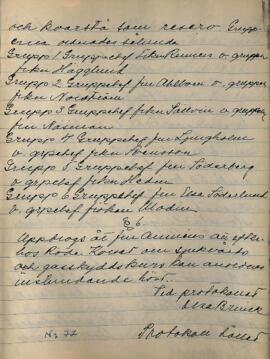 och kvarstå som reserv. Grupp-
erna ordnades sålunda
Grupp 1 Gruppchef fröken Renner v. gruppch
fröken Hägglund
Grupp 2 Gruppchef fru Ahlbom v. gruppch
fröken Nordström
Grupp 3 Gruppchef fröken v. gruppch
fru Näsman
Grupp 4 Gruppchef fru Ljungholm
v. grpchef fröken Svensson
Grupp 5 Gruppchef fru Söderberg
v. grpchef fröken Hedin
Grupp 6 Gruppchef fru Eva Söderlund
v. grpchef fröken Modin
§ 6
Uppdrogs åt fru att efter-
höra Röda Korset om sjukvårds
och gasskyddskurs kan anordnas
instundande höst
Vid protokollet
No 22
Protokoll